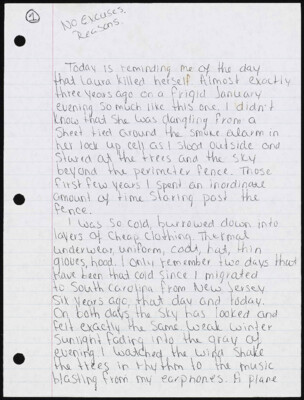 1
No Excuses.
Reasons.
Today is reminding me of the day
that Laura killed herself. Almost exactly
three years ago on a frigid January
evening so much like this one. I didn't
know that she was dangling from a
sheet tied around the smoke alarm in
her lock up cell as I stood outside and
stared at the trees and the sky
beyond the perimeter fence. Those
first few years I spent an inordinate
amount of time staring past the
fence.
I was so cold, burrowed down into
layers of cheap clothing. Thermal
underwear, uniform, coat, hat, thin
gloves, hood. I only remember two days that
have been that cold since I migrated
to South Carolina from New Jersey
six years ago, that day and today.
On both days the sky has looked and
felt exactly the same. Weak winter
sunlight fading into the gray of
evening. I watched the wind shake
the trees in rhythm to the music
blasting from my earphones. A plane